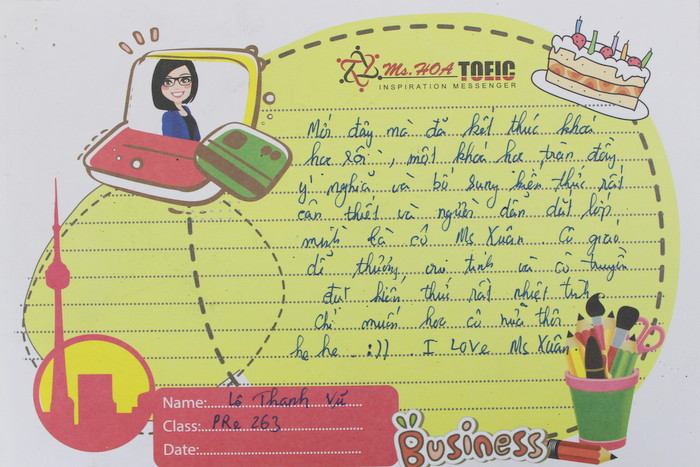 Ms. HOA TOEIC
INSPIRATION MESSENGER
Mới đây mà đã kết thúc khoá
học rồi, một khoá học tràn đầy
ý nghĩa và bổ sung kiến thức rất
cần thiết và người dẫn dắt lớp
mình là cô Ms Xuân. Cô giáo
dễ thương, vui tính và cô truyền
đạt kiến thức rất nhiệt tình
Chỉ muốn học cô nữa thôi
he he .. :)) . I Love Ms Xuân
Name: Lê Thanh Vũ
Class: PRe 263
Date:
Business